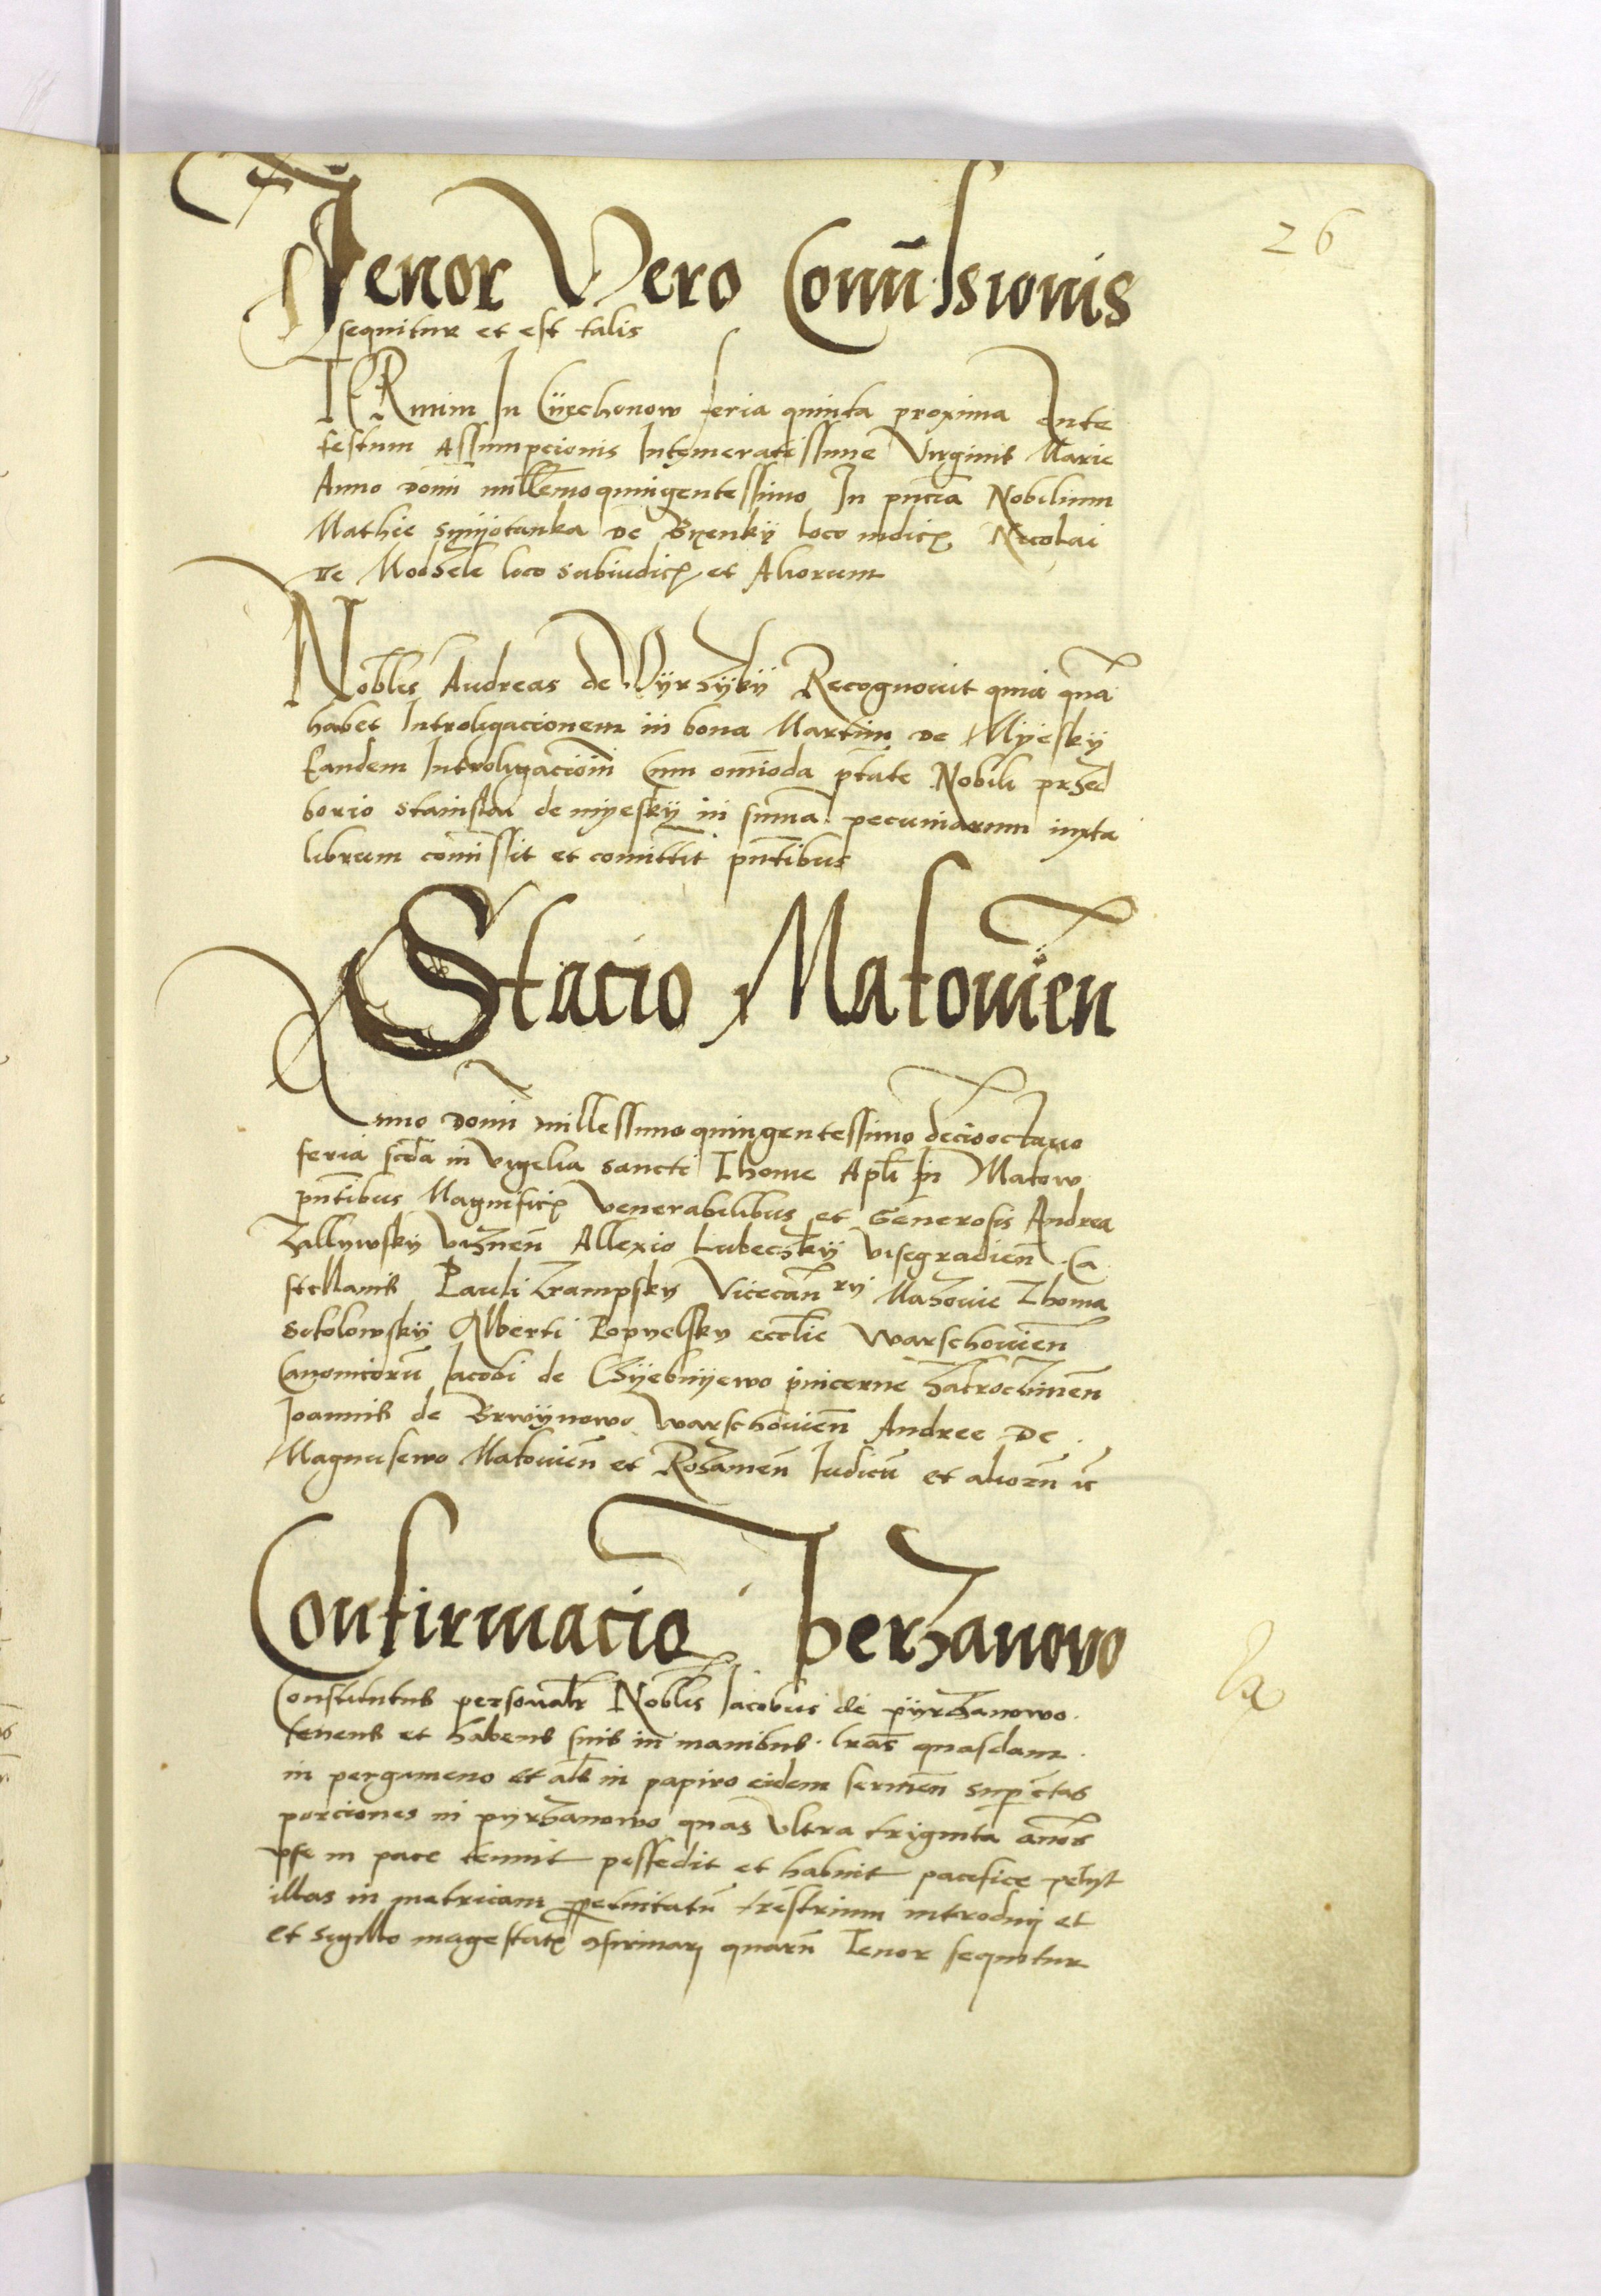 26
Tenor Vero Com̄issionis
sequitur et est talis
In Cÿechonow feria quinta proxima Ante
festum Assumpcionis Intemeratissime Virginis Marie
Anno domī millemoquingentessimo In pn̄cia Nobilium
Mathie de Byenkÿ loco iudicꝭ Nicolai
de Modzele loco subiudicꝭ et Aliorum
Nobłis Andreas de Recognouit quia qn̄a
habet Introligacionem in bona Martini de Mÿeskÿ
Eandem Introligacionē Cum om̄ioda ptāte Nobili przed
borio Stanislai de myeskÿ in sum̄a pecuniarum iuxta
librum com̄issit et com̄ittit pn̄tibus
Stacio Makouien̄
Anno domī millessimo quingentessimo decīooctauo
feria scd̄a in vigelia sancti Thome Apłi in Makow
pn̄tibus Magnificꝭ venerabilibus et Generosis Andrea
Zallywsky viznen̄ Allexio Lubeczkÿ visegradien̄ Ca
stellanis Pauli Vicecan̄rÿ Mazouie Thoma
Sokolowskÿ Alberti Popyelsky ecclīe Warschouien̄
Canonicorū Iacobi de pincerne Zakroczimen̄
Joannis de Brwÿnowo Warschouien̄ Andree De
Magnusewo Makouien̄ et Rozanien̄ Iudicū et aliorū
Confirmacio Pyerzanowo
Constitutus personałr Nobłis Iacobus de pÿrzanowo
tenens et habens suis in manibus lr̄as quasdam
in pergameno et als in papiro eidem super ct̄as
porciones in pyrzanowo quas Vltra triginta an̄os
ipse in pace tenuit possedit et habuit pacifice petyt
illas in metricam ꝑpetuitatū trēstrium introduci et
et sigillo magestatꝭ ꝯfirmari quarū Tenor sequitur